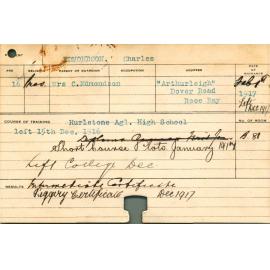 EDMONDSON, Charles
AGE RELIGION PARENT OR GUARDIAN OCCUPATION ADDRESS
16 Mrs C.Edmondson "Arthurleigh" Feb
Dover Road 1917
Rose Bay Left
Dec 1917
COURSE OF TRAINING Hurlstone Agl. High School No.
left 15th Dec. 1916 B 80
Short Course Photo January 1917
Left College Dec
RESULTS Intermediate Certificate
Piggery Certificate Dec 1917